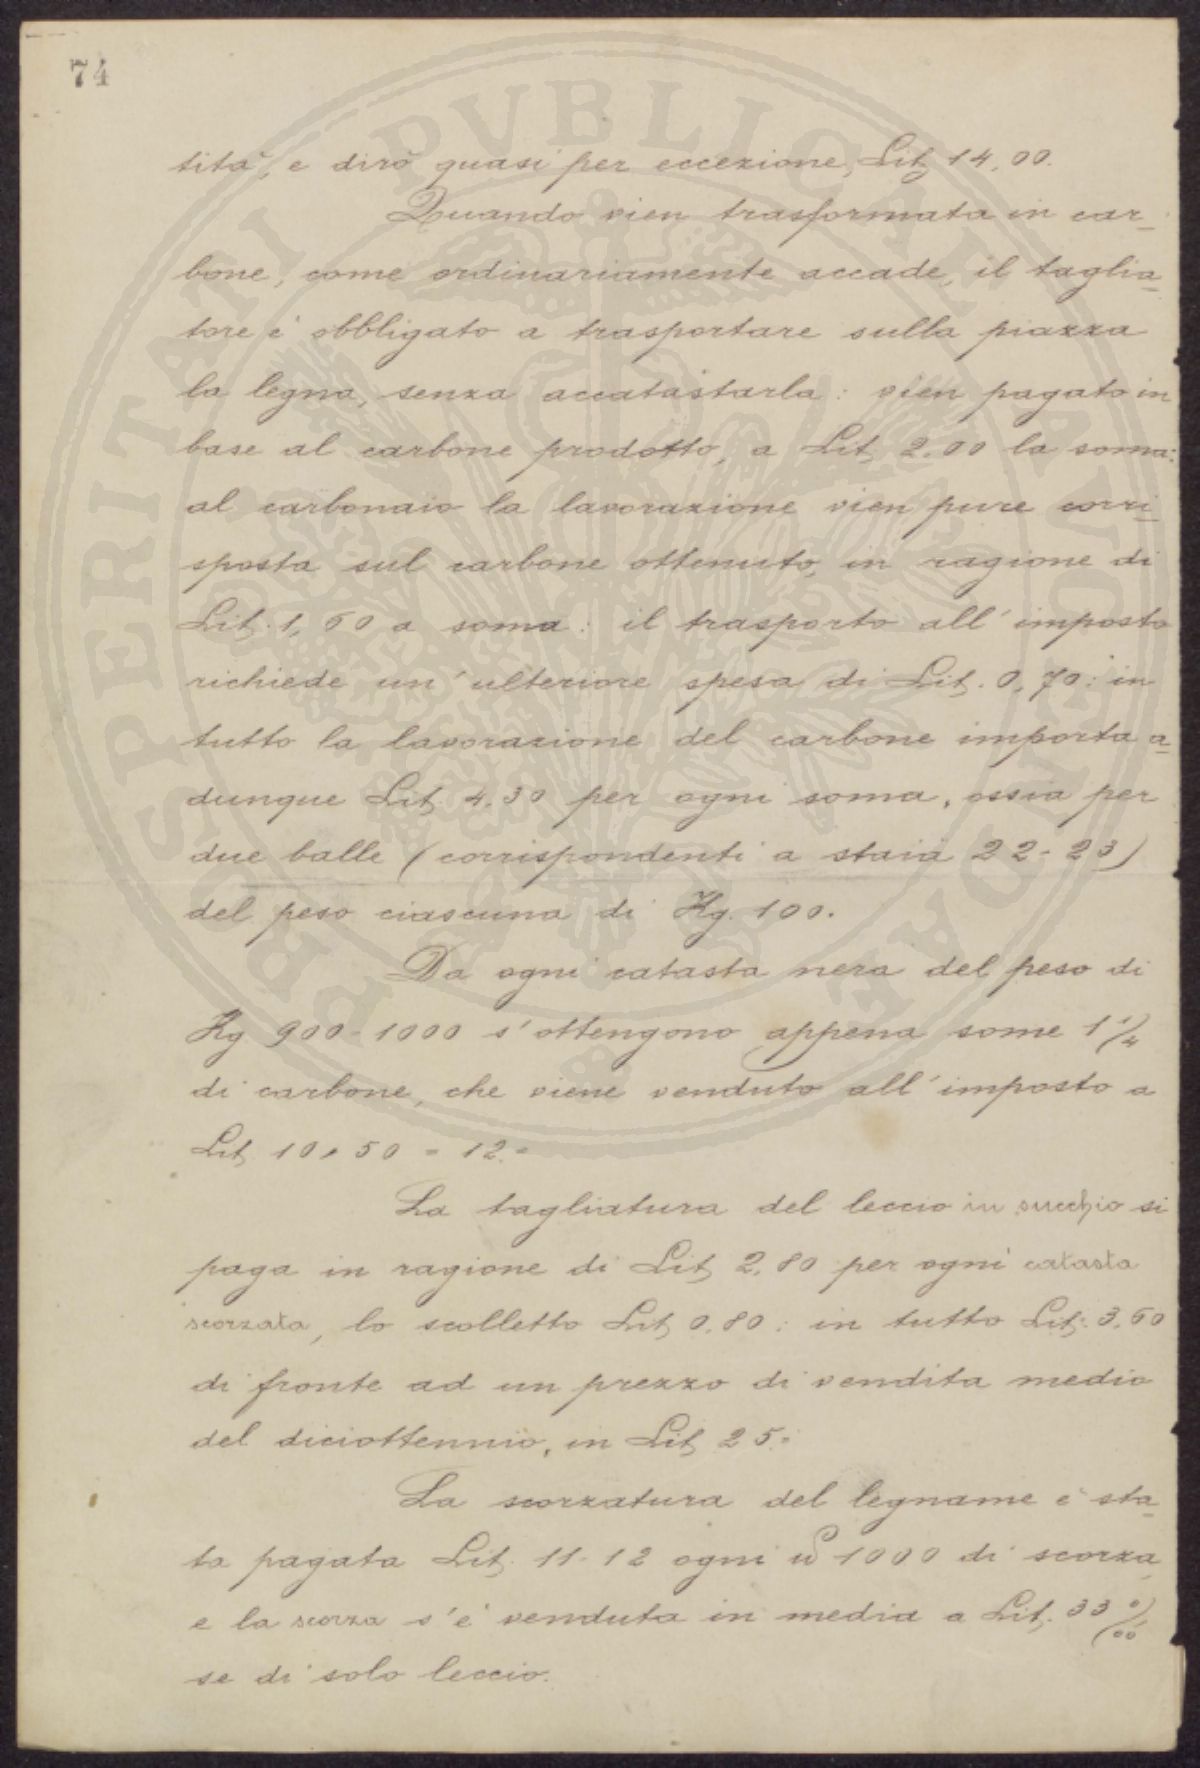 74
tità, e dirò quasi per eccezione, Lit 14,00.
Quando vien trasformata in car-
bone, come ordinariamente accade, il taglia-
tore è obbligato a trasportare sulla piazza
la legna, senza accatastarla: vien pagato in
base al carbone prodotto, a Lit 2.00 la soma:
al carbonaio la lavorazione vien pure corri-
sposta sul carbone ottenuto, in ragione di
Lit. 1,60 a soma: il trasporto all'imposto
richiede un'ulteriore spesa di Lit. 0,70: in
tutto la lavorazione del carbone importa a-
dunque Lit. 4.30 per ogni soma, ossia per
due balle (corrispondenti a staia 22-23)
del peso ciascuna di Kg. 100.
Da ogni catasta nera del peso di
Kg 900-1000 s'ottengono appena some 1 1/4
di carbone, che viene venduto all'imposto a
Lit. 10,50 - 12.-
La tagliatura del leccio in succhio si
paga in ragione di Lit 2,80 per ogni catasta
scorzata, lo scolletto Lit 0.80: in tutto Lit: 3,60
di fronte ad un prezzo di vendita medio
del diciottennio, in Lit 25.-
La scorzatura del legname è sta-
ta pagata Lit. 11-12 ogni 1000 di scorza
e la scorza s'è venduta in media a Lit. 33 0/00
se di solo leccio.
PROSPERITATI PVBLICAE AVGENDAE